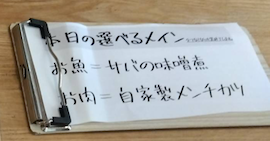 本日の選べるメイン
お魚=サバの味噌煮
お肉=自家製メンチカツ